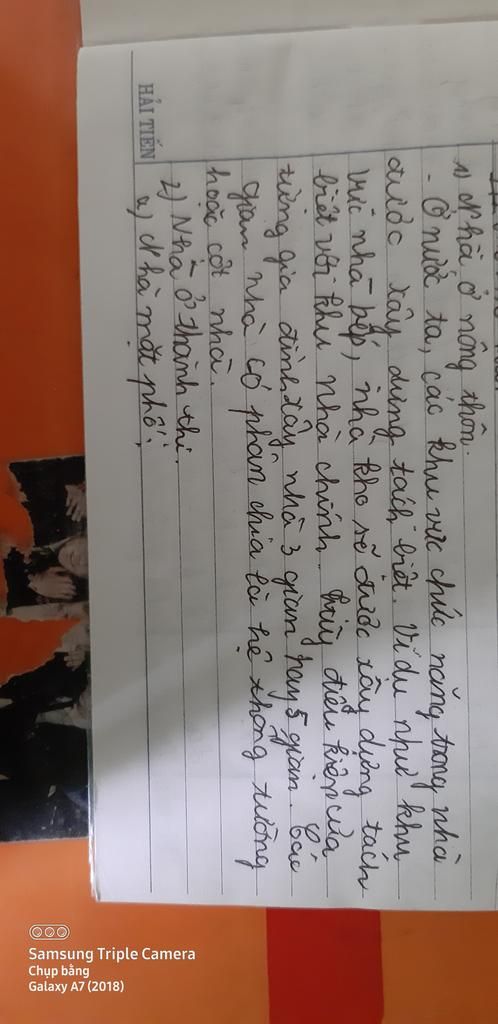 1) Nhà ở nông thôn.
- Ở nước ta, các khu vực chức năng trong nhà
được xây dựng tách biệt. Ví dụ như khu
vực nhà bếp, nhà kho sẽ được xây dựng tách
biệt với khu nhà chính. Tùy điều kiện của
từng gia đình xây nhà 3 gian hay 5 gian. Các
gian nhà có phân chia là hệ thống tường
hoặc cột nhà.
2) Nhà ở thành thị.
a) Nhà mặt phố:
HẢI TIẾN
Samsung Triple Camera
Chụp bằng
Galaxy A7 (2018)